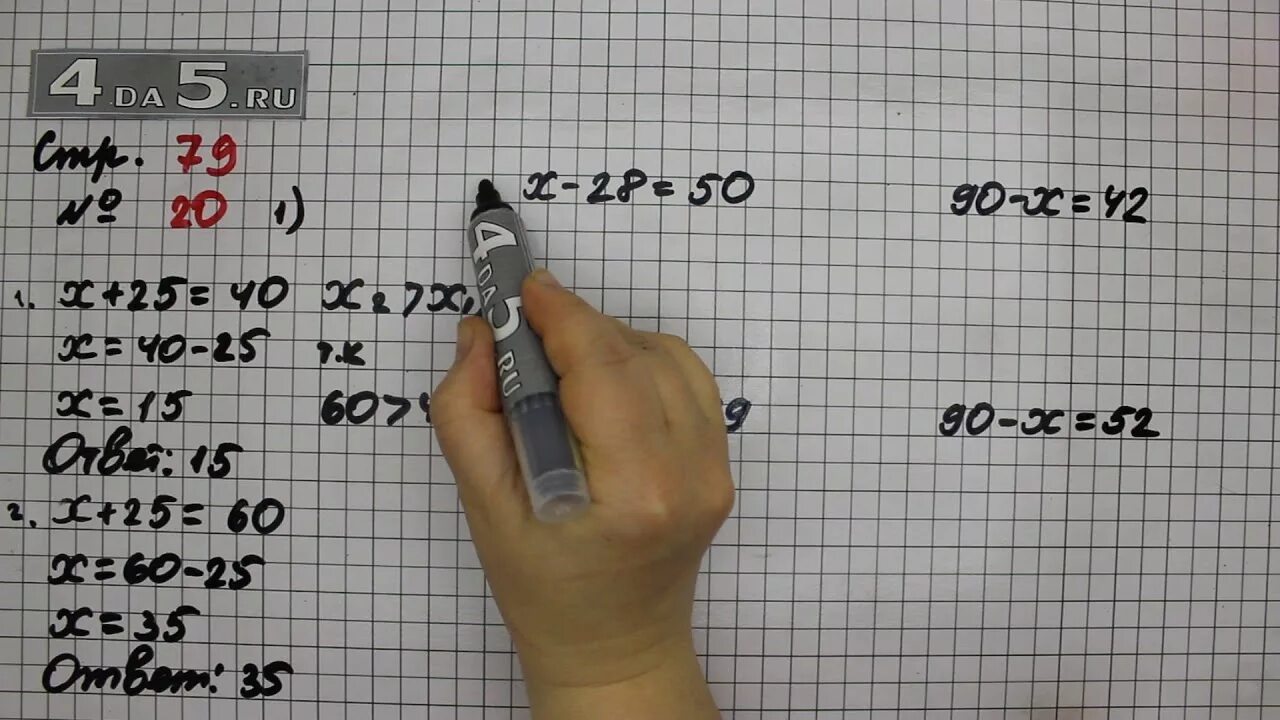 4DA5.RU
Стр. 79
№ 20 1)
1. x+25=40
x=40-25
x=15
Ответ: 15
2. x+25=60
x=60-25
x=35
Ответ: 35
x₂>x
т.к
60>4
x-28=50
9
90-x=42
90-x=52
4DA5RU